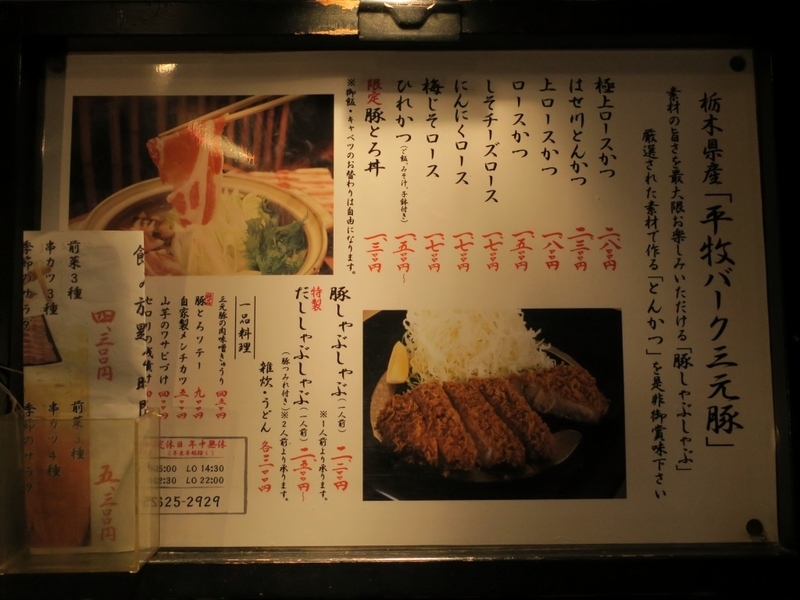 栃木県産「平牧バーク三元豚」
素材の旨さを最大限お楽しみいただける「豚しゃぶしゃぶ」
厳選された素材で作る「とんかつ」を是非御賞味下さい
極上ロースかつ 二、八〇〇円
はせ川とんかつ 二、三〇〇円
上ロースかつ 一、八〇〇円
ロースかつ 一、五〇〇円
しそチーズロース 一、七〇〇円
にんにくロース 一、七〇〇円
梅じそロース 一、七〇〇円
ひれかつ(ご飯、みそ汁、小鉢付き) 一、五〇〇円〜
限定 豚とろ丼 一、三〇〇円
※御飯・キャベツのお替わりは自由になります。
豚しゃぶしゃぶ(一人前) 二、二〇〇円
※1人前より承ります。
特製 だししゃぶしゃぶ(一人前) 二、五〇〇円〜
(豚つみれ付き)※2人前より承ります。
雑炊・うどん 各三〇〇円
一品料理
三元豚の肉味噌きゅうり 四五〇円
豚とろソテー 九〇〇円
自家製メンチカツ 五〇〇円
山芋のワサビづけ 四〇〇円
定休日 年中無休
LO 14:30
LO 22:00
625-2929
前菜3種
串カツ3種
季節のサラダ
四、三〇〇円
前菜3種
串カツ4種
季節のサラダ
五、三〇〇円